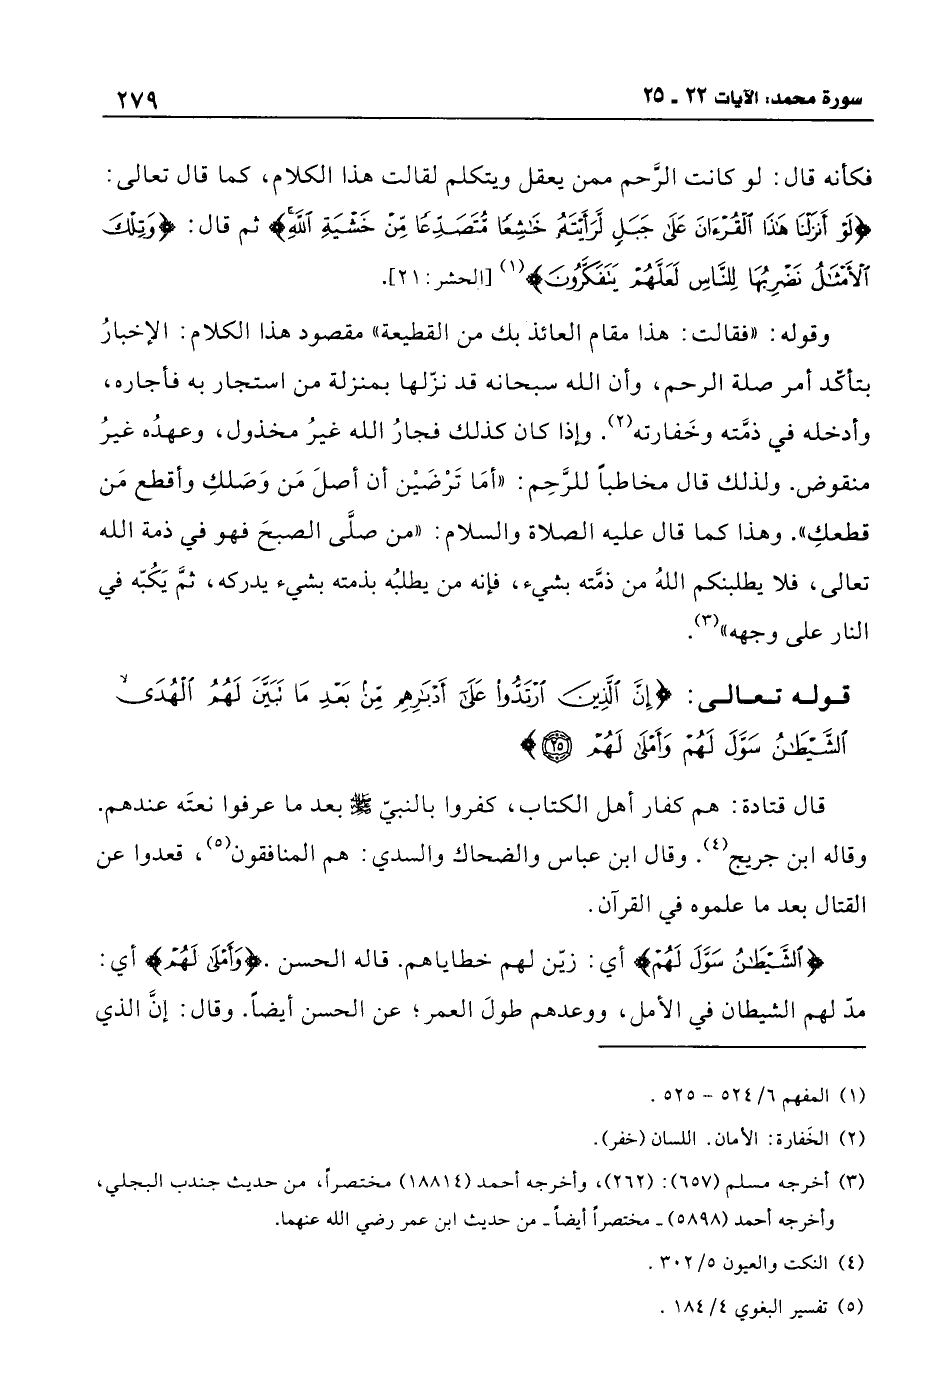 سورة محمد: الآيات ٢٢ ـ ٢٥
٢٧٩
فكأنه قال: لو كانت الرَّحم ممن يعقل ويتكلم لقالت هذا الكلام، كما قال تعالى:
﴿لَوْ أَنزَلْنَا هَٰذَا ٱلْقُرْءَانَ عَلَىٰ جَبَلٍ لَّرَأَيْتَهُۥ خَٰشِعًا مُّتَصَدِّعًا مِّنْ خَشْيَةِ ٱللَّهِۚ﴾ ثم قال: ﴿وَتِلْكَ
ٱلْأَمْثَٰلُ نَضْرِبُهَا لِلنَّاسِ لَعَلَّهُمْ يَتَفَكَّرُونَ﴾(١) [الحشر: ٢١].
وقوله: «فقالت: هذا مقام العائذ بك من القطيعة» مقصود هذا الكلام: الإخبارُ
بتأكّد أمر صلة الرحم، وأن الله سبحانه قد نزّلها بمنزلة من استجار به فأجاره،
وأدخله في ذمَّته وخَفارته(٢). وإذا كان كذلك فجارُ الله غيرُ مخذول، وعهدُه غيرُ
منقوض. ولذلك قال مخاطباً للرَّحِم: «أمَا تَرْضَيْن أن أصلَ مَن وَصَلكِ وأقطع مَن
قطعكِ». وهذا كما قال عليه الصلاة والسلام: «من صلَّى الصبحَ فهو في ذمة الله
تعالى، فلا يطلبنكم اللهُ من ذمَّته بشيء، فإنه من يطلبُه بذمته بشيء يدركه، ثمَّ يَكُبّه في
النار على وجهه»(٣).
قوله تعالى: ﴿إِنَّ ٱلَّذِينَ ٱرْتَدُّوا۟ عَلَىٰٓ أَدْبَٰرِهِم مِّنۢ بَعْدِ مَا تَبَيَّنَ لَهُمُ ٱلْهُدَىۙ
ٱلشَّيْطَٰنُ سَوَّلَ لَهُمْ وَأَمْلَىٰ لَهُمْ ٢٥﴾
قال قتادة: هم كفار أهل الكتاب، كفروا بالنبيّ ﷺ بعد ما عرفوا نعتَه عندهم.
وقاله ابن جريج(٤). وقال ابن عباس والضحاك والسدي: هم المنافقون(٥)، قعدوا عن
القتال بعد ما علموه في القرآن.
﴿ٱلشَّيْطَٰنُ سَوَّلَ لَهُمْ﴾ أي: زيّن لهم خطاياهم. قاله الحسن .﴿وَأَمْلَىٰ لَهُمْ﴾ أي:
مدّ لهم الشيطان في الأمل، ووعدهم طولَ العمر؛ عن الحسن أيضاً. وقال: إنَّ الذي
(١) المفهم ٥٢٤/٦ – ٥٢٥ .
(٢) الخَفارة: الأمان. اللسان (خفر).
(٣) أخرجه مسلم (٦٥٧): (٢٦٢)، وأخرجه أحمد (١٨٨١٤) مختصراً، من حديث جندب البجلي،
وأخرجه أحمد (٥٨٩٨) ـ مختصراً أيضاً ـ من حديث ابن عمر رضي الله عنهما.
(٤) النكت والعيون ٣٠٢/٥ .
(٥) تفسير البغوي ١٨٤/٤ .